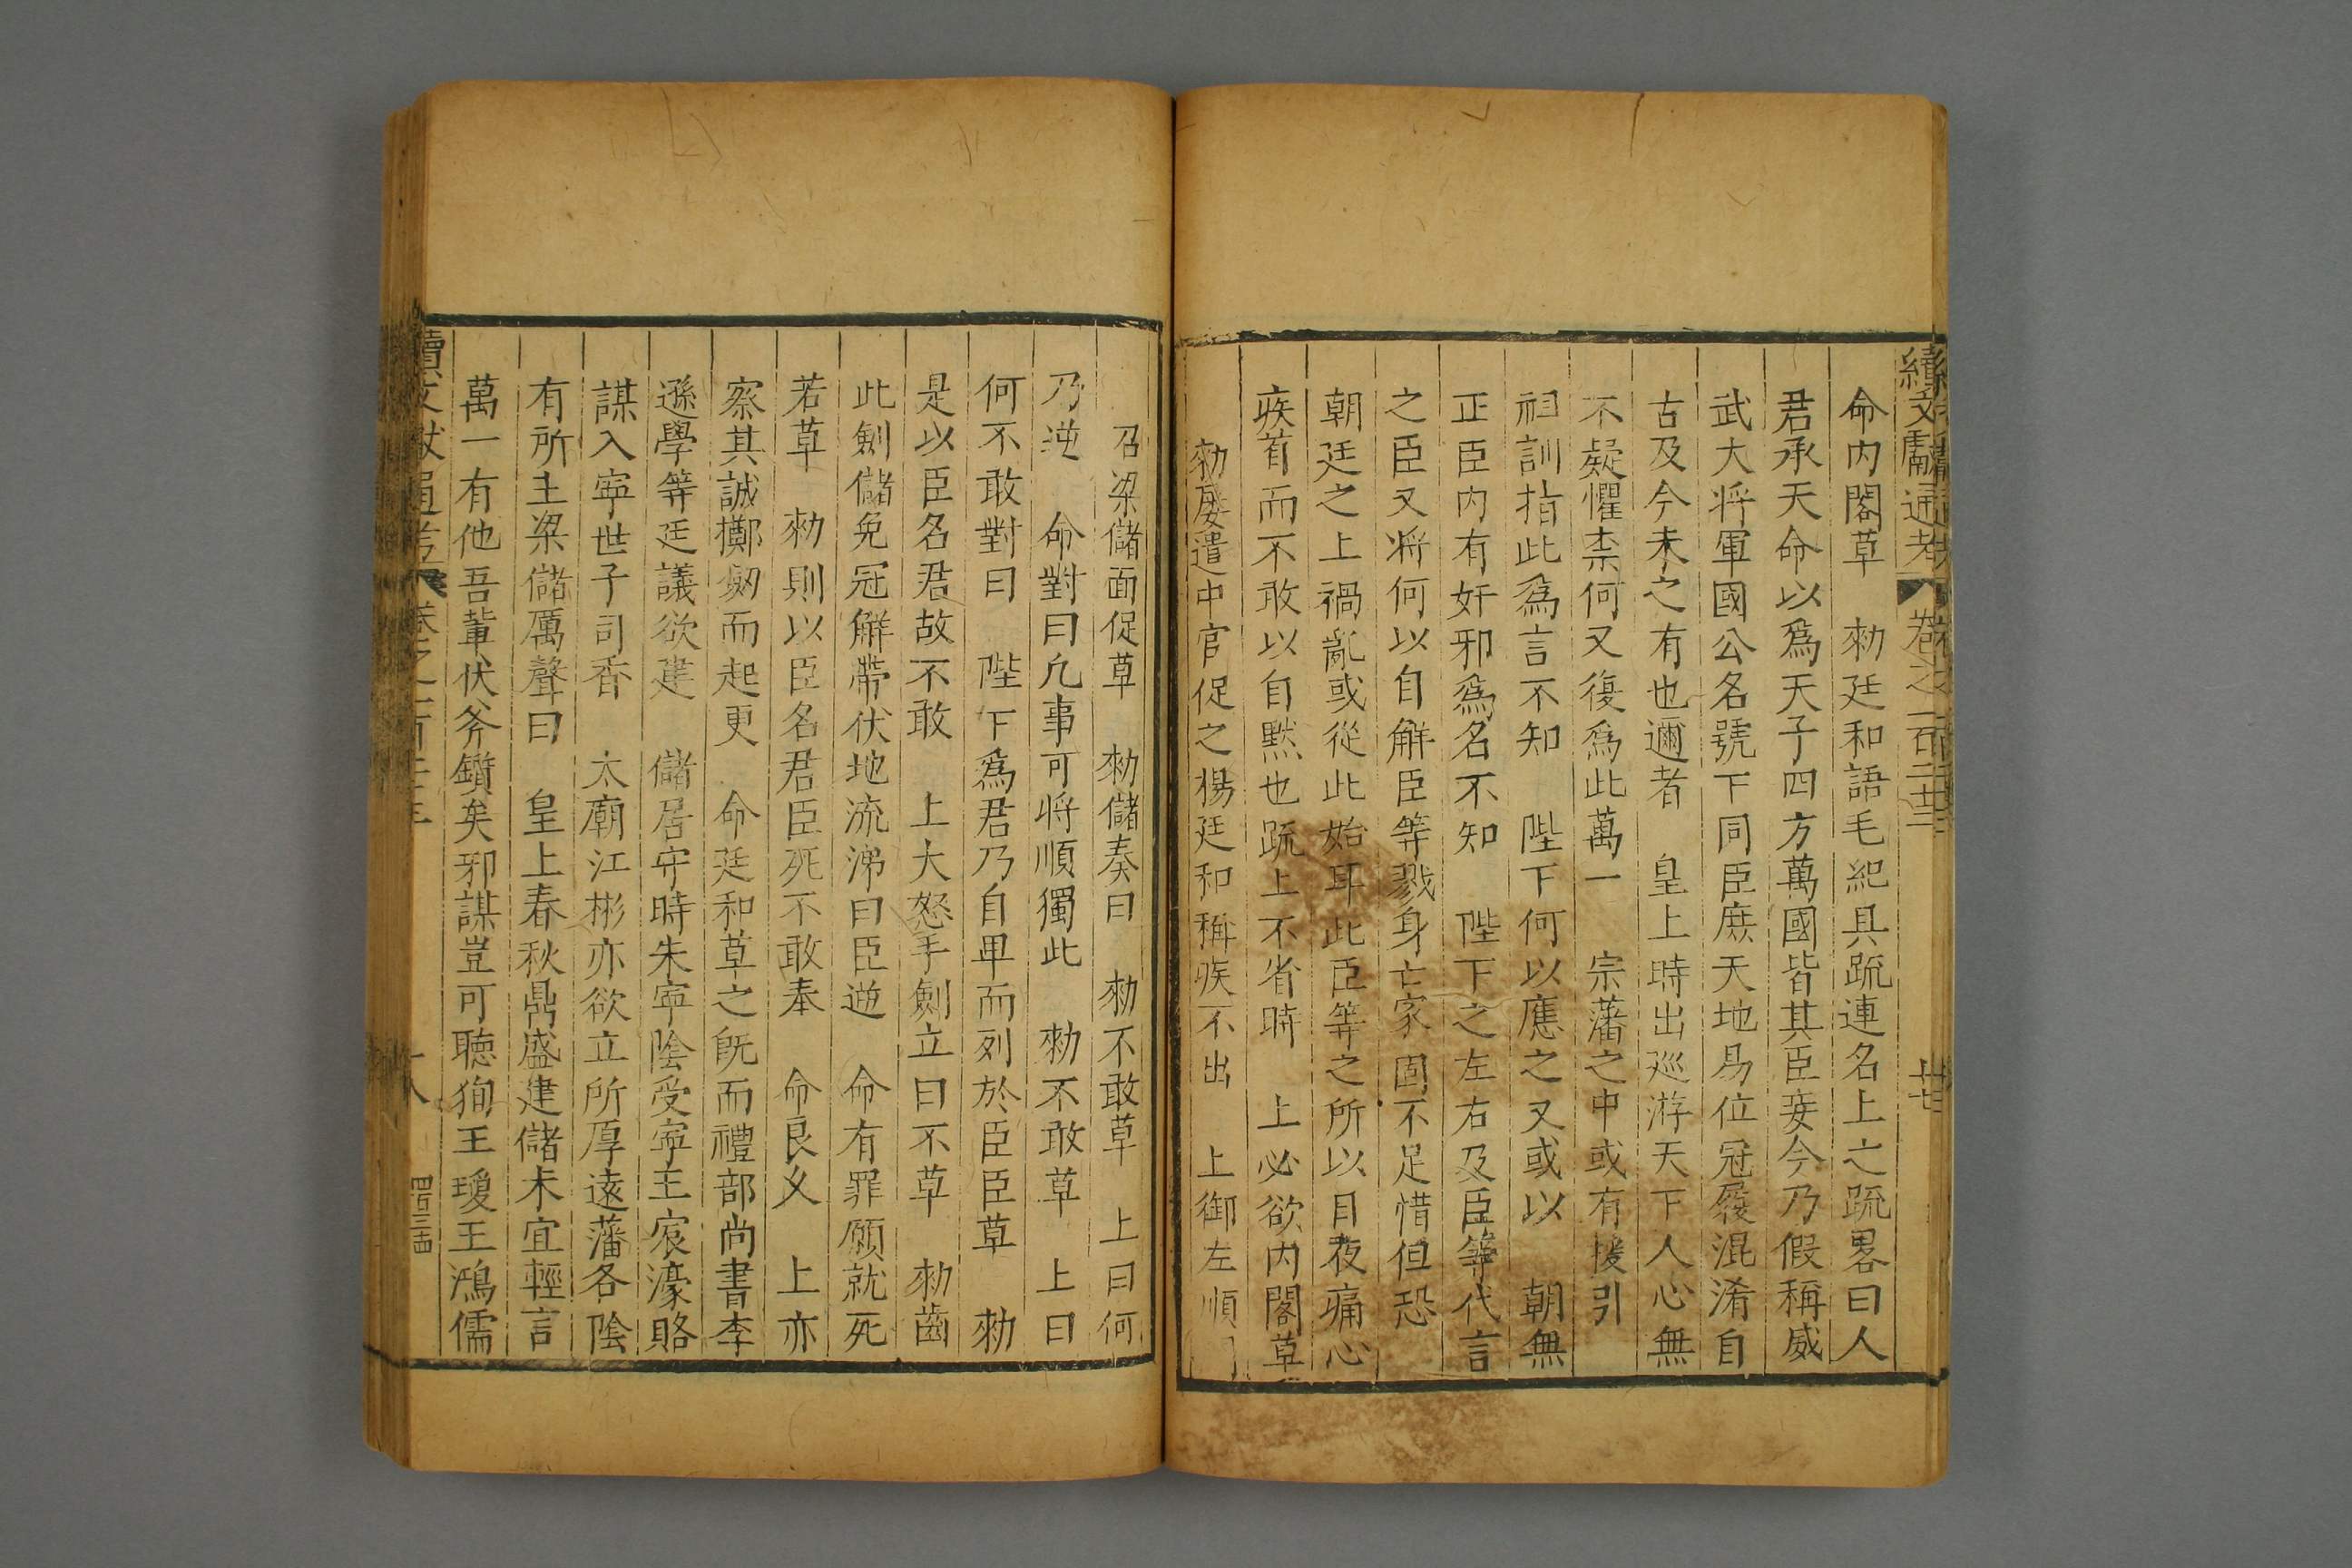 續文獻通考 卷之一百二十三 廿七
命內閣草 勑廷和語毛紀具疏連名上之疏畧曰人
君承天命以爲天子四方萬國皆其臣妾今乃假稱威
武大將軍國公名號下同臣庶天地易位冠履混淆自
古及今未之有也邇者 皇上時出廵游天下人心無
不疑懼柰何又復爲此萬一 宗藩之中或有援引
祖訓指此爲言不知 陛下何以應之又或以 朝無
正臣內有奸邪爲名不知 陛下之左右及臣等代言
之臣又將何以自解臣等戮身亡家固不足惜但恐
朝廷之上禍亂或從此始耳此臣等之所以日夜痛心
疾首而不敢以自默也疏上不省時 上必欲內閣草
勑屡遣中官促之楊廷和稱疾不出 上御左順門
召梁儲面促草 勑儲奏曰 勑不敢草 上曰何
乃逆 命對曰凢事可將順獨此 勑不敢草 上曰
何不敢對曰 陛下爲君乃自卑而列於臣臣草 勑
是以臣名君故不敢 上大怒手劍立曰不草 勑齒
此劍儲免冠解帶伏地流涕曰臣逆 命有罪願就死
若草 勑則以臣名君臣死不敢奉 命良久 上亦
察其誠擲劒而起更 命廷和草之旣而禮部尚書李
遜學等廷議欲建 儲居守時朱寧陰受寧王宸濠賂
謀入寧世子司香 太廟江彬亦欲立所厚遠藩各陰
有所主梁儲厲聲曰 皇上春秋鼎盛建儲未宜輕言
萬一有他吾輩伏斧鑕矣邪謀豈可聽狥王瓊王鴻儒
續文獻通考 卷之一百二十三